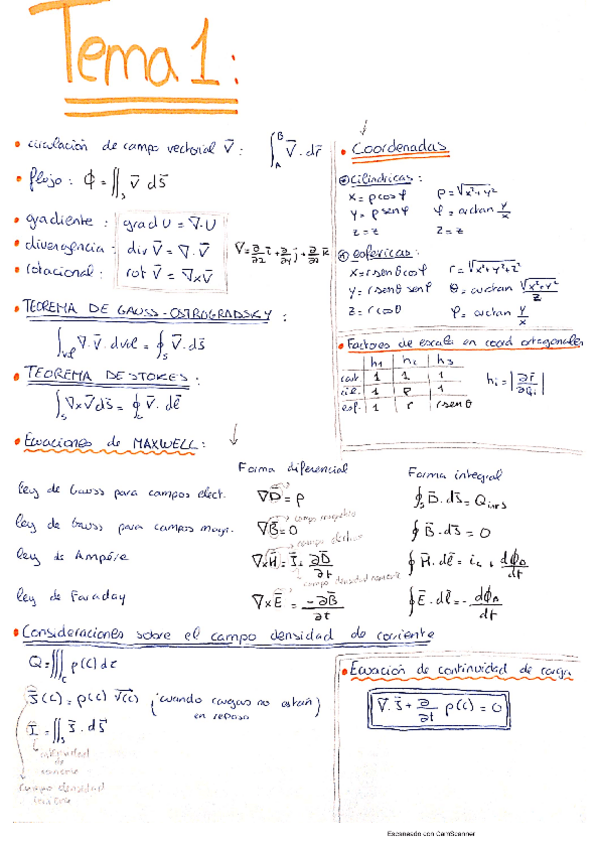 Tema 1:
• circulación de campo vectorial V⃗: ∫_A^B V⃗ · dr⃗
• flujo: Φ = ∬_S V⃗ dS⃗
• gradiente: grad U = ∇·U
• divergencia: div V⃗ = ∇·V⃗
• rotacional: rot V⃗ = ∇×V⃗
∇ = ∂/∂x i⃗ + ∂/∂y j⃗ + ∂/∂z k⃗
• TEOREMA DE GAUSS-OSTROGRADSKY:
∫_vol ∇·V⃗ · dvol = ∮_S V⃗ · dS⃗
• TEOREMA DE STOKES:
∫_S ∇×V⃗ dS⃗ = ∮_C V⃗ · dl⃗
• Coordenadas
cilíndricas:
x = ρ cos φ ρ = √(x²+y²)
y = ρ sen φ φ = arctan y/x
z = z z = z
esféricas:
x = r sen θ cos φ r = √(x²+y²+z²)
y = r sen θ sen φ θ = arctan √(x²+y²)/z
z = r cos θ φ = arctan y/x
• Factores de escala en coord ortogonales
h₁ h₂ h₃
cart 1 1 1
cil. 1 ρ 1
esf. 1 r r sen θ
hᵢ = |∂r⃗/∂qᵢ|
• Ecuaciones de MAXWELL:
Forma diferencial Forma integral
ley de Gauss para campos elect. ∇D⃗ = ρ ∮_S D⃗ · dS⃗ = Q
ley de Gauss para campos magn. ∇B⃗ = 0 ∮ B⃗ · dS⃗ = 0
campo magnético
campo eléctrico
ley de Ampére ∇×H⃗ = J⃗ + ∂D⃗/∂t ∮ H⃗ · dl⃗ = i_c + dΦ_D/dt
campo densidad corriente
ley de Faraday ∇×E⃗ = -∂B⃗/∂t ∮ E⃗ · dl⃗ = - dΦ_B/dt
• Consideraciones sobre el campo densidad de corriente
Q = ∭ ρ(c) dτ
J⃗(c) = ρ(c) V⃗(c) (cuando cargas no están en reposo)
I = ∬_S J⃗ · dS⃗
intensidad
de
corriente
campo densidad
corriente
• Ecuación de continuidad de carga
∇·J⃗ + ∂/∂t ρ(c) = 0
Escaneado con CamScanner